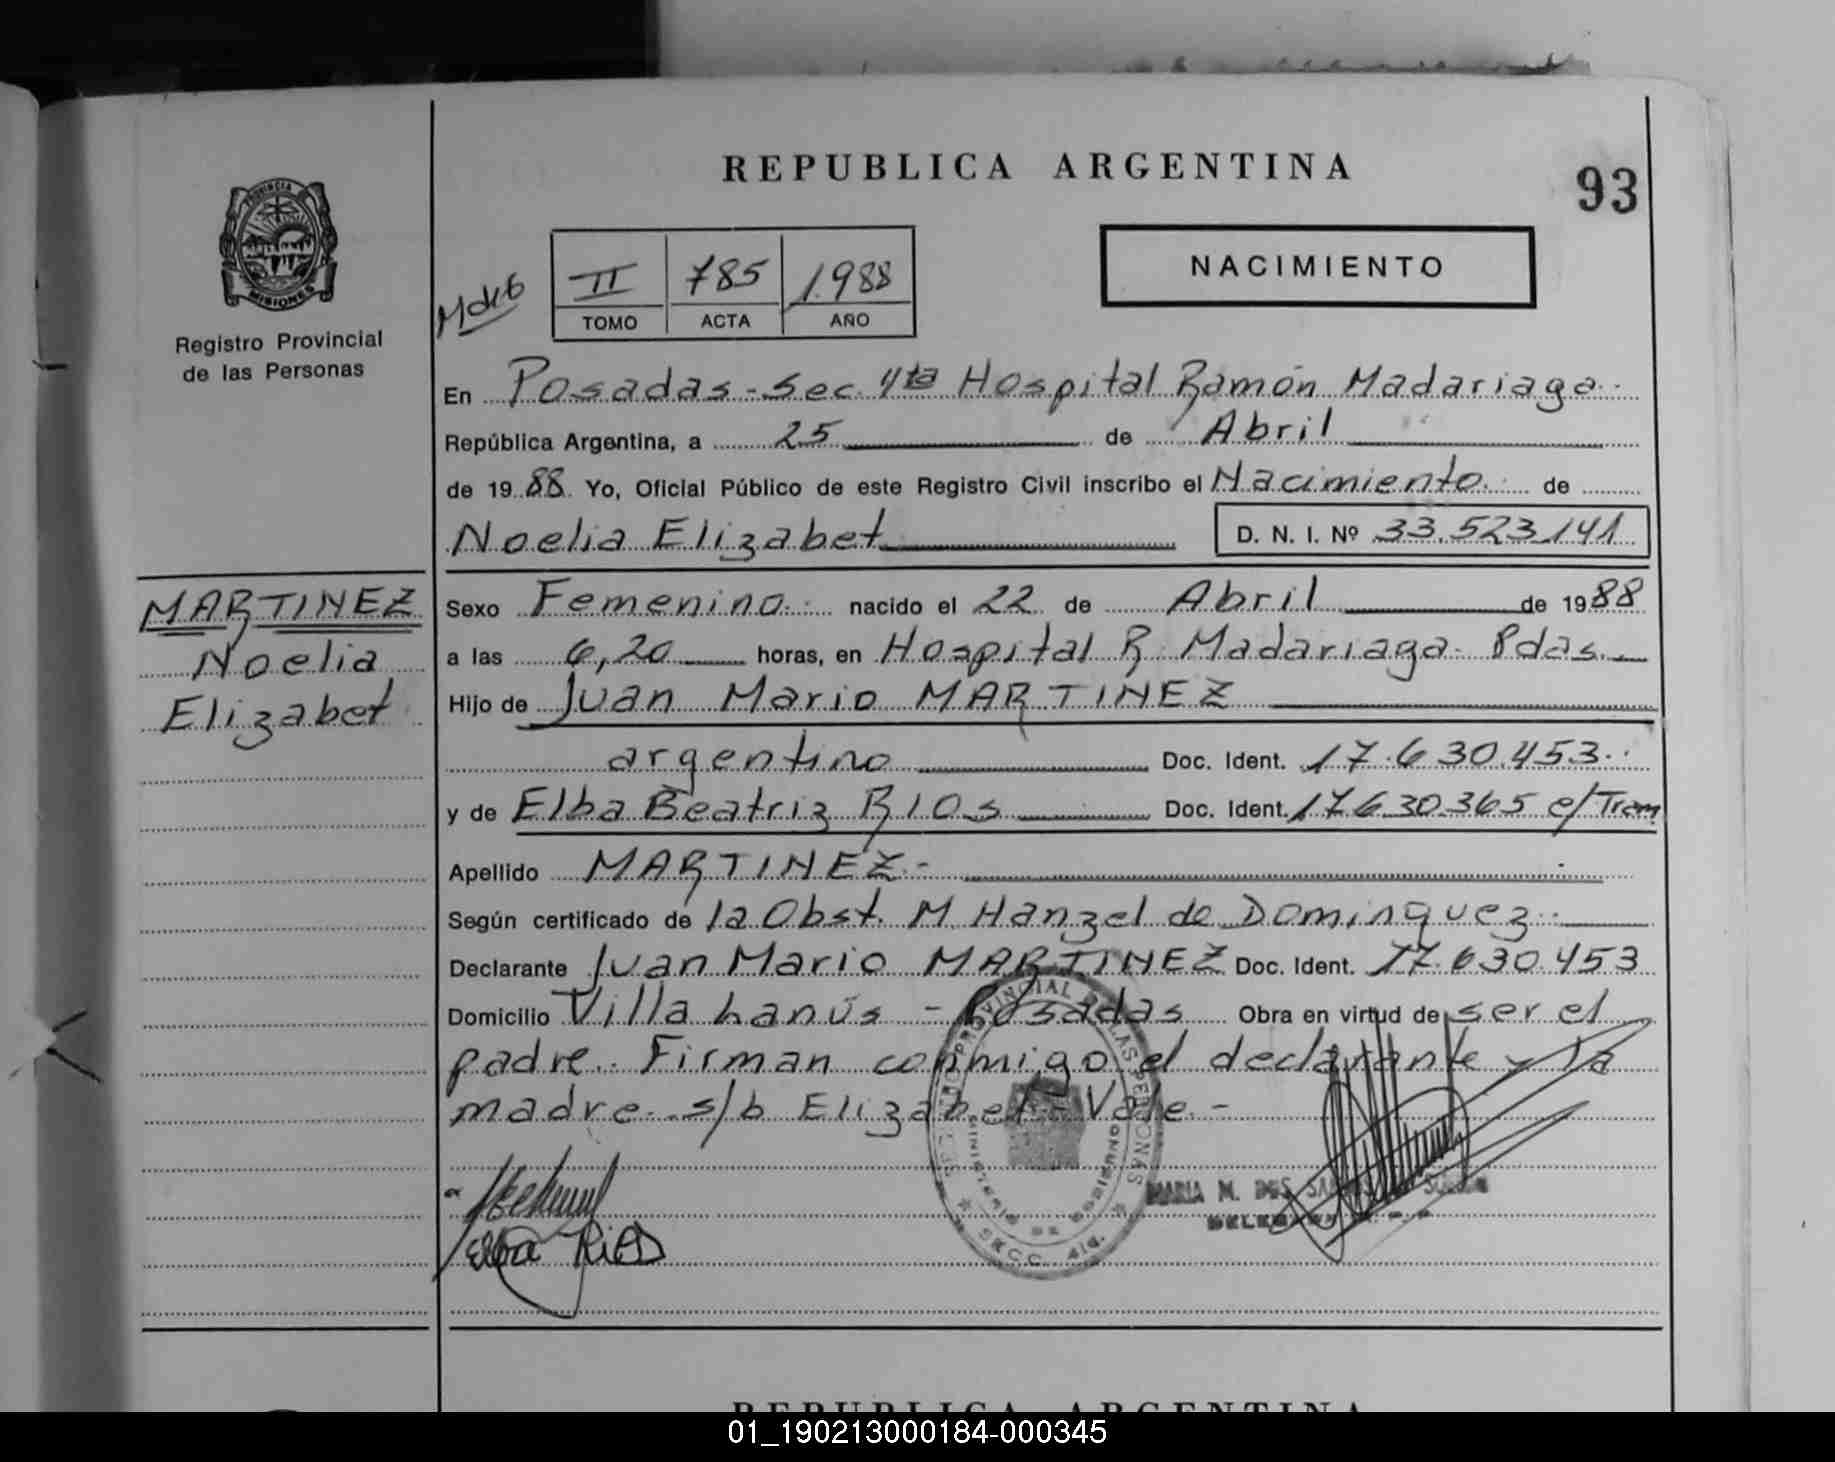 REPUBLICA ARGENTINA
93
PROVINCIA
MISIONES
Registro Provincial
de las Personas
II 785 1.988
TOMO ACTA AÑO
NACIMIENTO
En Posadas - Sec. 4ta Hospital Ramón Madariaga.
República Argentina, a 25 de Abril
de 1988 Yo, Oficial Público de este Registro Civil inscribo el Nacimiento de
Noelia Elizabet D. N. I. Nº 33.523.141
MARTINEZ
Noelia
Elizabet
Sexo Femenino nacido el 22 de Abril de 1988
a las 6,20 horas, en Hospital R. Madariaga. Pdas.
Hijo de Juan Mario MARTINEZ
argentino Doc. Ident. 17.630.453.
y de Elba Beatriz RIOS Doc. Ident. 17.630.365 e/Tram
Apellido MARTINEZ.-
Según certificado de la Obst. M. Hanzel de Dominguez.
Declarante Juan Mario MARTINEZ Doc. Ident. 17.630.453
Domicilio Villa Lanús - Posadas Obra en virtud de ser el
padre. Firman conmigo el declarante y la
madre. s/b Elizabet - Vale.-
PROVINCIAL DE LAS PERSONAS
MINISTERIO DE GOBIERNO
SECC. 4ta.
MARIA M. DOS
Elba Rios
REPUBLICA ARGENTINA
01_190213000184-000345